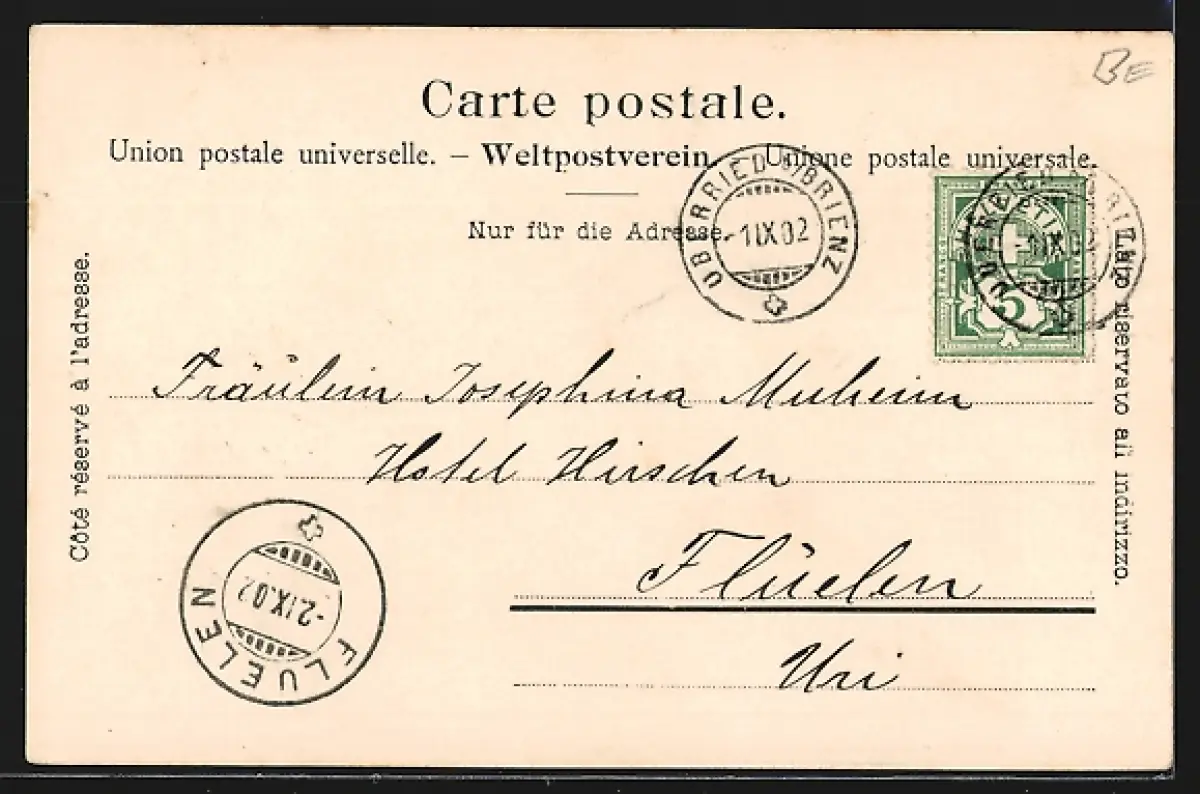 BE
Carte postale.
Union postale universelle. – Weltpostverein. Unione postale universale.
Nur für die Adresse.
UBERRIED B/BRIENZ
-1.IX.02
-1.IX.02
5
Côté réservé à l'adresse.
Lato riservato all indirizzo.
Fräulein Josephina Muheim
Hotel Hirschen
Flüelen
Uri
FLUELEN
-2.IX.02